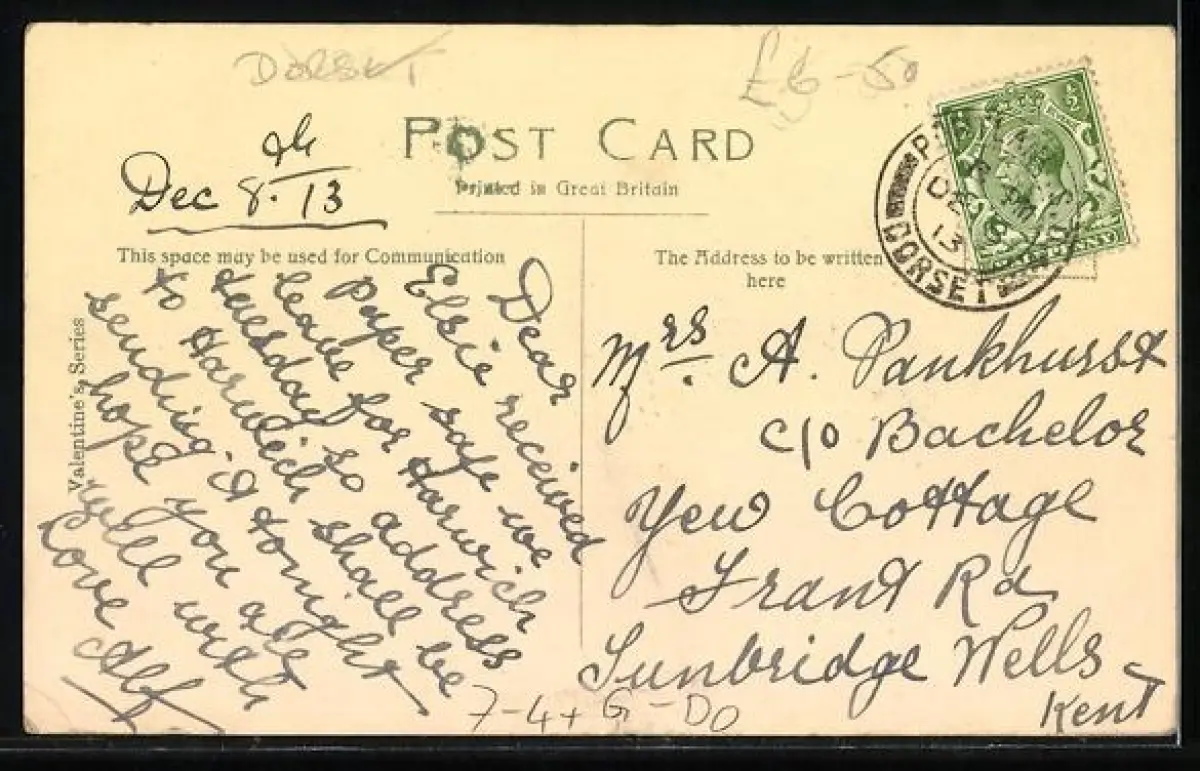 DORSET
£6-50
POST CARD
Printed in Great Britain
Dec 8th. 13
This space may be used for Communication
The Address to be written
here
Valentine's Series
Dear
Elsie received
paper safe we
leave for Harwich
tuesday so address
to Harwich shall be
sending it tonight
hope you are
well with
Love
Alf
Mrs. A. Pankhurst
c/o Bachelor
Yew Cottage
Frant Rd
Tunbridge Wells
Kent
DORSET
13
7-4+ G-DO